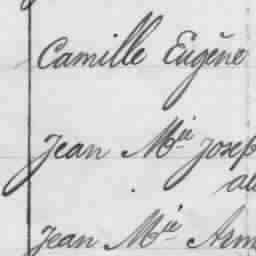 Camille Eugène
Jean Mie Josep
Jean Mie Arm